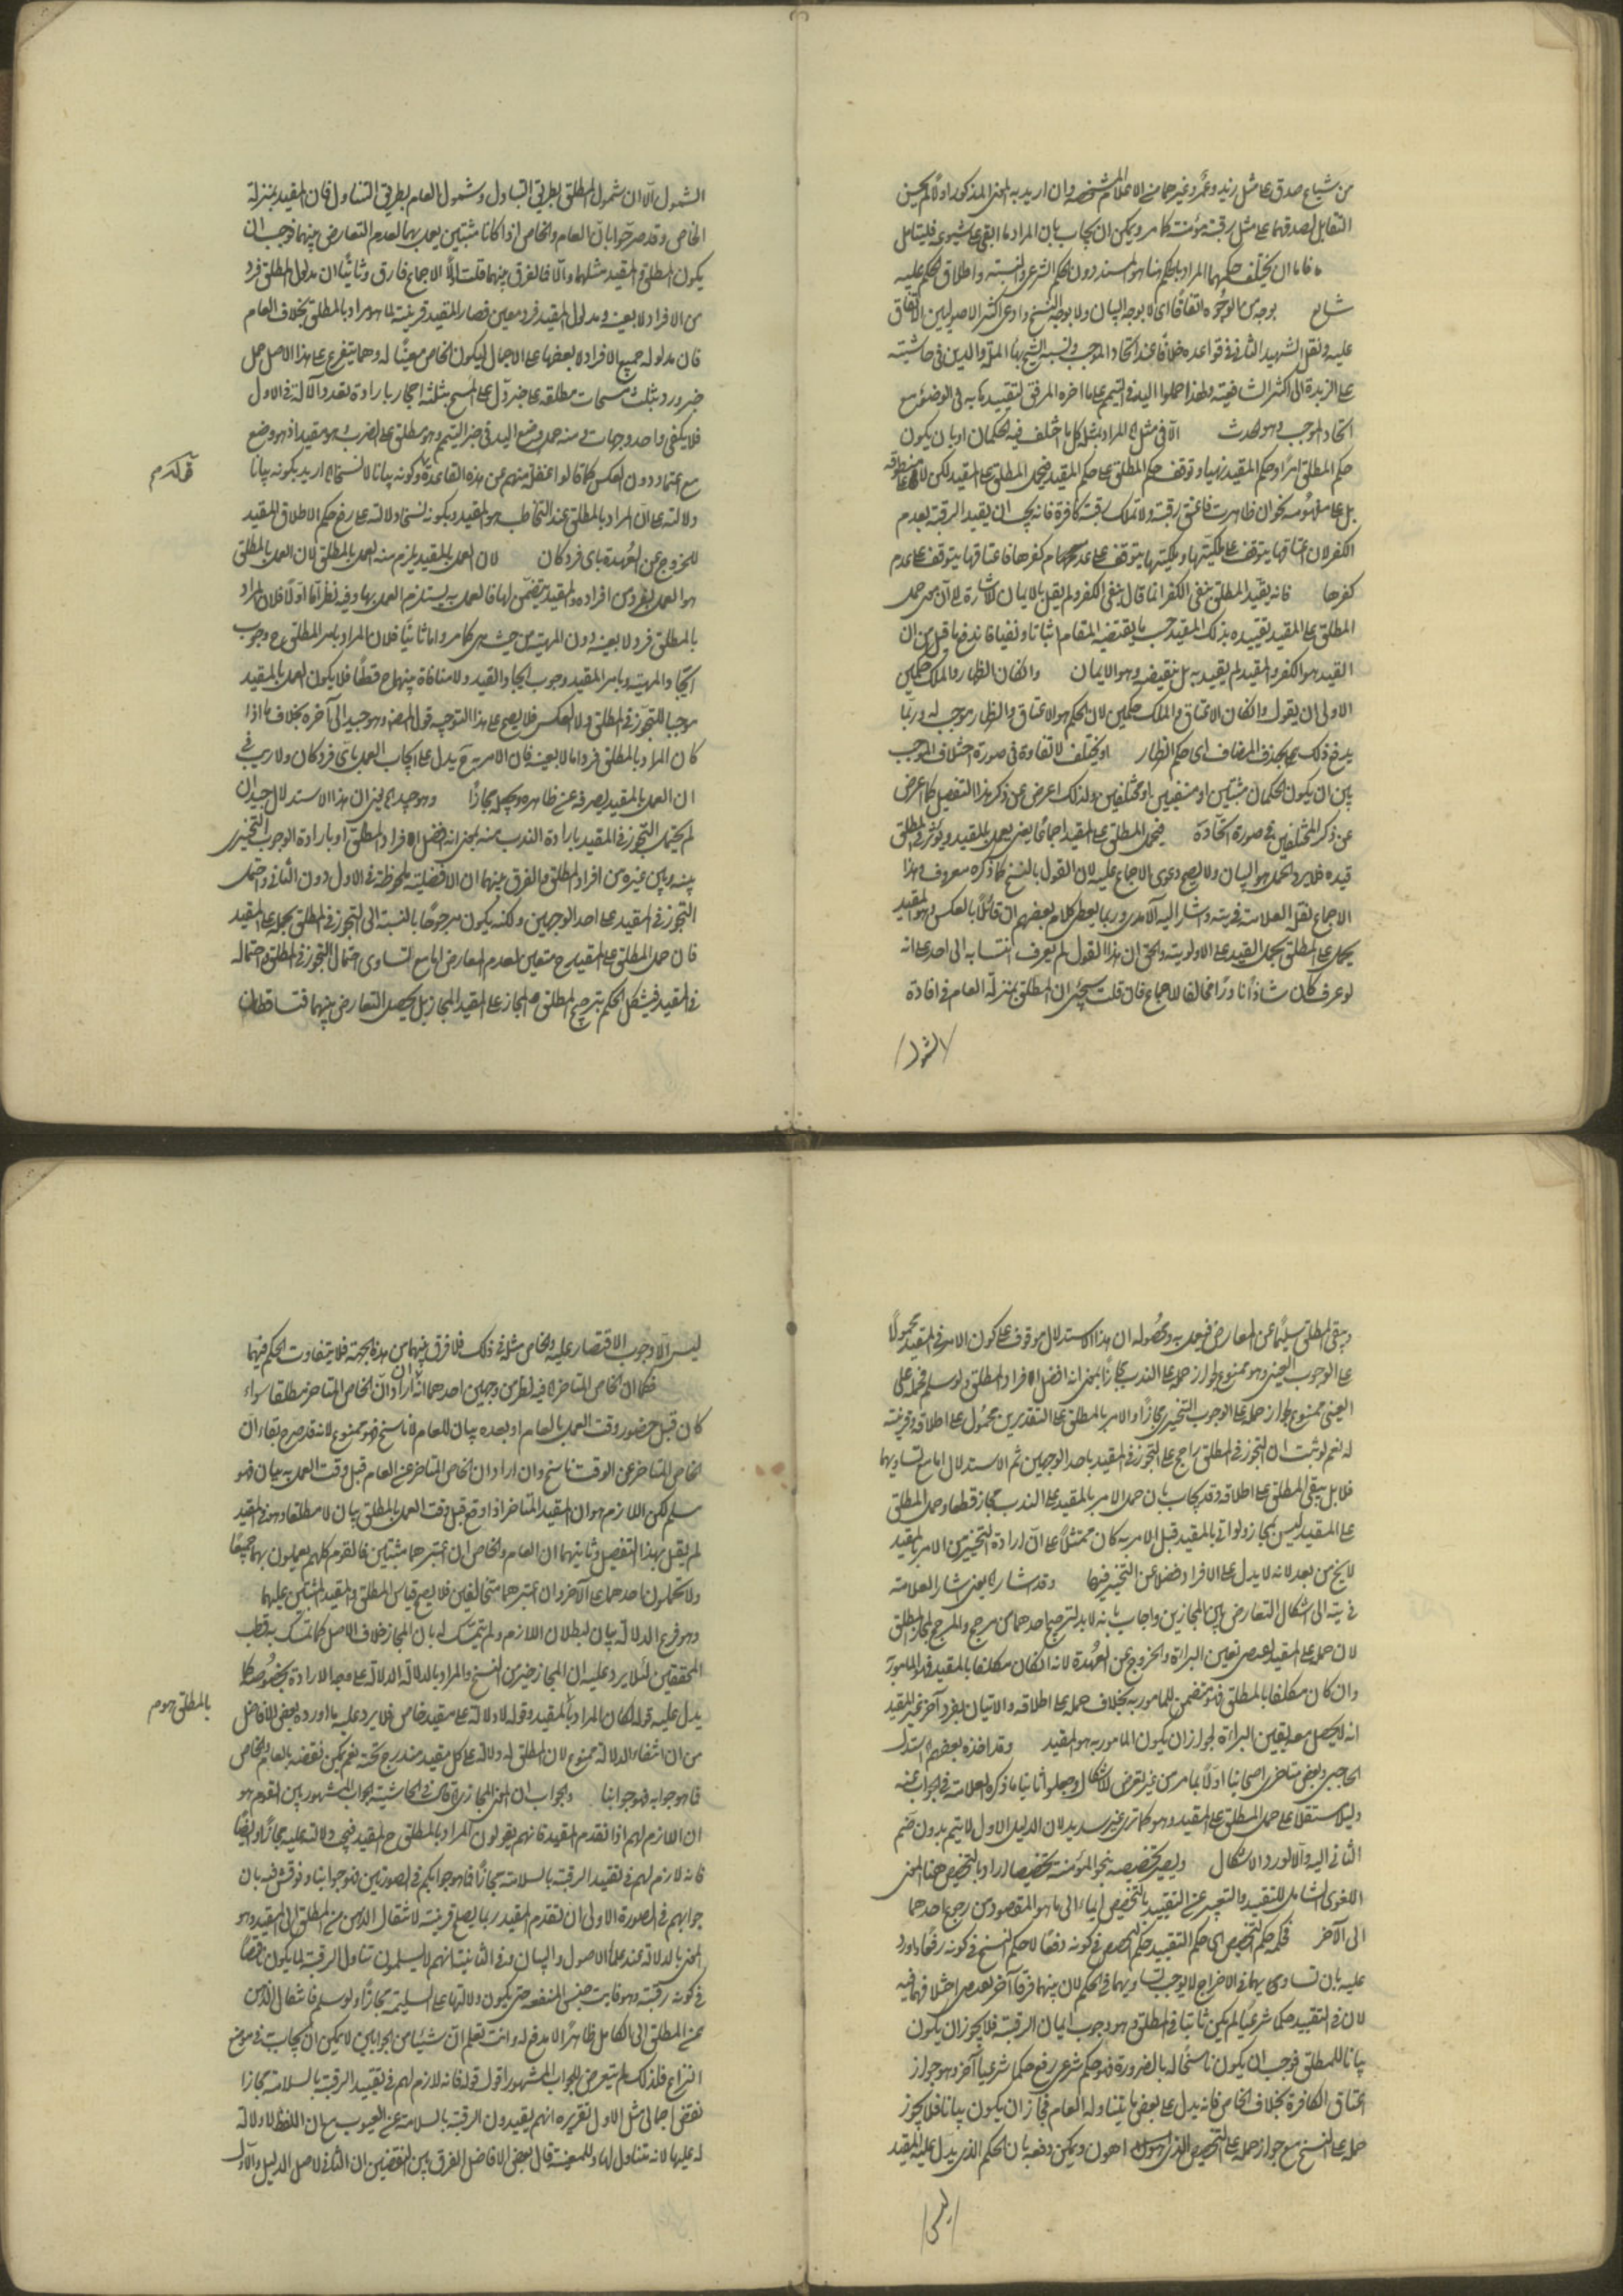 من شياع صدق على مثل زيد وعمرو وغيرهما من الاعلام المشخصة وان اريد به المعنى المذكور اولا لم يحسن
التقابل لصدقهما على مثل رقبة مؤمنة كما مر ويمكن ان يجاب بان المراد ما ابقى على شيوعه فليتامل
فاما ان يختلف حكمهما المراد بالحكم هنا هو المسند دون الحكم الشرعي والنسبة واطلاق الحكم عليه
شايع بوجه من الوجوه اتفاقا اى لا بوجه البيان ولا بوجه النسخ وادعى اكثر الاصوليين الاتفاق
عليه ونقل الشهيد الثاني في قواعده خلافا عند اتحاد الموجب ونسبه الشيخ بهاء الملة والدين في حاشيته
على الزبدة الى اكثر الشافعية ولهذا حملوا اليد في التيمم على ما اخره المرفق لتقييدها به في الوضوء مع
اتحاد الموجب وهو الحدث الا في مثل المراد بمثله كل ما اختلف فيه الحكمان او بان يكون
حكم المطلق امرا وحكم المقيد نهيا وتوقف حكم المطلق على حكم المقيد فيحمل المطلق على المقيد لكن لا على منطوقه
بل على مفهومه نحو ان ظاهرت فاعتق رقبة ولا تملك رقبة كافرة فانه يجب ان يقيد الرقبة بعدم
الكفر لان اعتاقها يتوقف على ملكيتها وملكيتها يتوقف على عدم كفرها فاعتاقها يتوقف على عدم
كفرها فانه يقيد المطلق بنفى الكفر انما قال بنفى الكفر ولم يقل بالايمان للاشارة الى ان معنى حمل
المطلق على المقيد تقييده بذلك المقيد حسب ما يقتضيه المقام اثباتا ونفيا فاندفع ما قيل من ان
القيد هو الكفر والمقيد لم يقيد به بل بنقيضه وهو الايمان وان كان الظهار والملك حكمين
الاولى ان يقول وان كان الاعتاق والملك حكمين لان الحكم هو الاعتاق والظهار موجب له وربما
يدفع ذلك بحذف المضاف اى حكم الظهار او يختلف لا تفاوت في صورة اختلاف الموجب
بين ان يكون الحكمان مثبتين او منفيين او مختلفين ولذلك اعرض عن ذكر هذا التفصيل كما اعرض
عن ذكر المختلفين في صورة اتحاده فيحمل المطلق على المقيد اجماعا يعنى يعمل بالمقيد ويؤثر في المطلق
قيده ظاهر الحمل هو البيان ولا يصح دعوى الاجماع عليه لان القول بالنسخ كما ذكره معروف وهذا
الاجماع نقل العلامة في يته واشار اليه الآمدى وربما يعطى كلام بعضهم ان قائلا بالعكس وهو المقيد
يحمل على المطلق بحمل القيد على الاولوية والحق ان هذا القول لم يعرف انتسابه الى احد على انه
لو عرف كان شاذا نادرا مخالفا للاجماع فان قلت سيجئ ان المطلق بمنزلة العام في افادة
الشمول
الشمول الا ان شمول المطلق بطريق التبادل وشمول العام بطريق التناول فان المقيد بمنزلة
الخاص وقد صرحوا بان العام والخاص اذا كانا مثبتين يعمل بهما لعدم التعارض بينهما فوجب ان
يكون المطلق والمقيد مثلهما والا فالفرق بينهما قلت اولا الاجماع فارق وثانيا ان مدلول المطلق فرد
من الافراد لا بعينه ومدلول المقيد فرد معين فصار المقيد قرينة لما هو مراد بالمطلق بخلاف العام
فان مدلوله جميع الافراد لا بعضها على الاجمال ليكون الخاص معينا له ومما يتفرع على هذا الاصل حمل
خبر ورد بثلث مسحات مطلقة على خبر دل على المسح بثلثة احجار بارادة تعدد الآلة في الاول
فلا يكفى واحد وجهات ومنه حمل وضع اليد في خبر التيمم وهو مطلق على الضرب وهو مقيد اذ هو وضع
مع اعتماد دون العكس كما قالوا غفلة منهم عن هذه القاعدة وكونه بيانا لا نسخا اريد بكونه بيانا
قوله م
دلالته على ان المراد بالمطلق عند التخاطب هو المقيد وبكونه نسخا دلالته على رفع حكم الاطلاق بالمقيد
للخروج عن العهدة باى فرد كان لان العمل بالمقيد يلزم منه العمل بالمطلق لان العمل بالمطلق
هو العمل بفرد من افراده والمقيد يتضمن لها فالعمل به يستلزم العمل بها وفيه نظر اما اولا فلان المراد
بالمطلق فرد لا بعينه دون المهية من حيث هى كما مر واما ثانيا فلان المراد بامر المطلق ح وجوب
ايجاد المهية وبامر المقيد وجوب ايجاد القيد ولا منافاة بينهما ح قطعا فلا يكون العمل بالمقيد
موجبا للتجوز في المطلق ولا العكس فلا يصح على هذا التوجيه قول المصنف وهو جيد الى آخره بخلاف ما اذا
كان المراد بالمطلق فردا ما لا بعينه فان الامر به ح يدل على ايجاب العمل باى فرد كان ولا ريب في
ان العمل بالمقيد يصرفه عن ظاهره ويجعله مجازا وهو جيد اى يعنى ان هذا الاستدلال جيد ان
لم يحتمل التجوز في المقيد بارادة الندب منه بمعنى انه افضل افراد المطلق او بارادة الوجوب التخييرى
بينه وبين غيره من افراد المطلق والفرق بينهما ان الافضلية ملحوظة في الاول دون الثانى واحتمل
التجوز في المقيد على احد الوجهين ولكنه يكون مرجوحا بالنسبة الى التجوز في المطلق بحمله على المقيد
فان حمل المطلق على المقيد ح متعين لعدم المعارض اما مع تساوى احتمال التجوز في المطلق واحتماله
في المقيد فيشكل الحكم بترجيح المطلق المجاز على المقيد المجاز بل يحصل التعارض بينهما فتساقطان
ويبقى المطلق سليما عن المعارض فيعمل به وحصوله ان هذا الاستدلال موقوف على كون الامر في المقيد محمولا
على الوجوب العينى وهو ممنوع لجواز حمله على الندب مجازا بمعنى انه افضل افراد المطلق ولو سلم فحمله على
العينى ممنوع لجواز حمله على الوجوب التخييرى مجازا والامر بالمطلق على التقديرين محمول على اطلاقه وقرينة
له نعم لو ثبت ان التجوز في المطلق راجح على التجوز في المقيد باحد الوجهين تم الاستدلال اما مع تساويهما
فلا بل يبقى المطلق على اطلاقه وقد يجاب بان حمل الامر بالمقيد على الندب مجاز قطعا وحمل المطلق
على المقيد ليس بمجاز ولو اتى بالمقيد قبل الامر به كان ممتثلا على ان ارادة التخيير من الامر بالمقيد
لا يخ من بعد لانه لا يدل على الافراد فضلا عن التخيير فيها وقد اشار اى يعنى اشار العلامة
في يته الى اشكال التعارض بين المجازين واجاب بانه لابد لترجيح احدهما من مرجح والمرجح لمجاز المطلق
لان حمله على المقيد يحصل يقين البرائة والخروج عن العهدة لانه ان كان مكلفا بالمقيد فهو المامور به
وان كان مكلفا بالمطلق فهو متضمن للمامور به بخلاف حمله على اطلاقه والاتيان بفرد آخر غير المقيد
انه لا يحصل معه يقين البرائة لجواز ان يكون المامور به هو المقيد وقد اخذه بعضهم استدل
الحاجبى وبعض متاخرى اصحابنا اولا بما مر من غير تعرض للاشكال وجعلوا ثانيا ما ذكره العلامة في الجواب عنه
دليلا مستقلا على حمل المطلق على المقيد وهو كما ترى غير سديد لان الدليل الاول لا يتم بدون ضم
الثانى اليه والا لورد الاشكال ويصير تخصيصه بنحو المؤمنة تخصيصا اراد بالتخصيص هنا المعنى
اللغوى الشامل للتقييد والتعبير عن التقييد بالتخصيص ايماء الى ما هو المقصود من رجوع احدهما
الى الآخر فحكمه حكم التخصيص اى حكم التقييد حكم التخصيص في كونه دفعا لا حكم النسخ في كونه رفعا واورد
عليه بان تساويهما في الاخراج لا يوجب تساويهما في الحكم لان بينهما فرقا آخر لعدم اختلافهما فيه
لان في التقييد حكما شرعيا لم يكن ثابتا في المطلق وهو وجوب ايمان الرقبة فلا يجوز ان يكون
بيانا للمطلق فوجب ان يكون ناسخا له بالضرورة فهو حكم شرعى رفع حكما شرعيا آخر وهو جواز
اعتاق الكافرة بخلاف الخاص فانه يدل على بعض ما يتناوله العام فجاز ان يكون بيانا فلا يجوز
حمله على النسخ مع جواز حمله على التخصيص الذى هو اهون ويمكن دفعه بان الحكم الذى يدل عليه المقيد
ليس
ليس الا وجوب الاقتصار عليه والخاص مثله في ذلك فلا فرق بينهما من هذه الجهة فلا يتفاوت الحكم فيهما
فكما ان الخاص المتاخر اه فيه نظر من وجهين احدهما انه ان اراد ان الخاص المتاخر مطلقا سواء
كان قبل حضور وقت العمل بالعام او بعده بيان للعام لا ناسخ فهو ممنوع لانه قد صرح بقاء ان
الخاص المتاخر عن الوقت ناسخ وان اراد ان الخاص المتاخر عن العام قبل وقت العمل به بيان فهو
مسلم لكن اللازم هو ان المقيد المتاخر اذا وقع قبل وقت العمل بالمطلق بيان لا مطلقا وهو في المقيد
لم يقل بهذا التفصيل وثانيهما ان العام والخاص ان اعتبر هما مثبتين فالقوم كلهم يعملون بهما جميعا
ولا يحملون احدهما على الآخر وان اعتبر هما متخالفين فلا يصح قياس المطلق والمقيد المثبتين عليهما
وهو فرع الدلالة بيان لبطلان اللازم ولم يتمسك له بان المجاز خلاف الاصل كما تمسك به قطب
المحققين لئلا يرد عليه ان المجاز خير من النسخ والمراد بالدلالة الدلالة على وجه الارادة بخصوصه كما
يدل عليه قوله لكان المراد بالمقيد وقوله لا دلالة على مقيد خاص فلا يرد عليه ما اورده بعض الافاضل
بالمطلق هو م
من ان انتفاء الدلالة ممنوع لان المطلق له دلالة على كل مقيد مندرج تحته نعم يمكن نقضه بالعام والخاص
فما هو جوابه فهو جوابنا والجواب ان المعنى المجازى قال في الحاشية الجواب المشهور بين القوم هو
ان اللازم لهم اذا تقدم المقيد فانهم يقولون المراد بالمطلق ح المقيد فيجب دلالته عليه مجازا وايضا
فانه لازم لهم في تقييد الرقبة بالسلامة مجازا فما هو جوابكم في الصورتين فهو جوابنا ونوقش فيه بان
جوابهم في الصورة الاولى ان تقدم المقيد ربما يصلح قرينة لانتقال الذهن من المطلق الى المقيد وهو
المعنى بالدلالة عند علماء الاصول والبيان وفي الثانية انهم لا يسلمون تناول الرقبة لما يكون ناقصا
في كونه رقبة وهو فايت جنس المنفعة حتى يكون دلالتها على السليمة مجازا ولو سلم فانتقال الذهن
عن المطلق الى الكامل ظاهر لا مدفع له وانت تعلم ان شيئا من الجوابين لا يمكن ان يجاب به في موضع
النزاع فلذلك لم يتعرض للجواب المشهور اقول قوله فانه لازم لهم في تقييد الرقبة بالسلامة مجازا
نقض اجمالى مثل الاول تقريره انهم يقيدون الرقبة بالسلامة عن العيوب مع ان اللفظ لا دلالة
له عليها لانه متناول لها وللمعيبة قال بعض الافاضل الفرق بين النقضين ان الثانى لاصل الدليل والاول